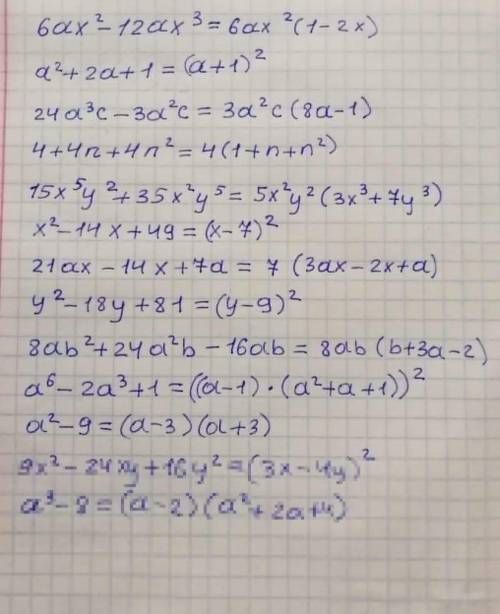 6ax² - 12ax³ = 6ax²(1 - 2x)
a² + 2a + 1 = (a+1)²
24a³c - 3a²c = 3a²c(8a-1)
4 + 4n + 4n² = 4(1+n+n²)
15x⁵y² + 35x²y⁵ = 5x²y²(3x³ + 7y³)
x² - 14x + 49 = (x-7)²
21ax - 14x + 7a = 7(3ax - 2x + a)
y² - 18y + 81 = (y-9)²
8ab² + 24a²b - 16ab = 8ab(b+3a-2)
a⁶ - 2a³ + 1 = ((a-1)·(a²+a+1))²
a² - 9 = (a-3)(a+3)
9x² - 24xy + 16y² = (3x - 4y)²
a³ - 8 = (a-2)(a² + 2a+4)